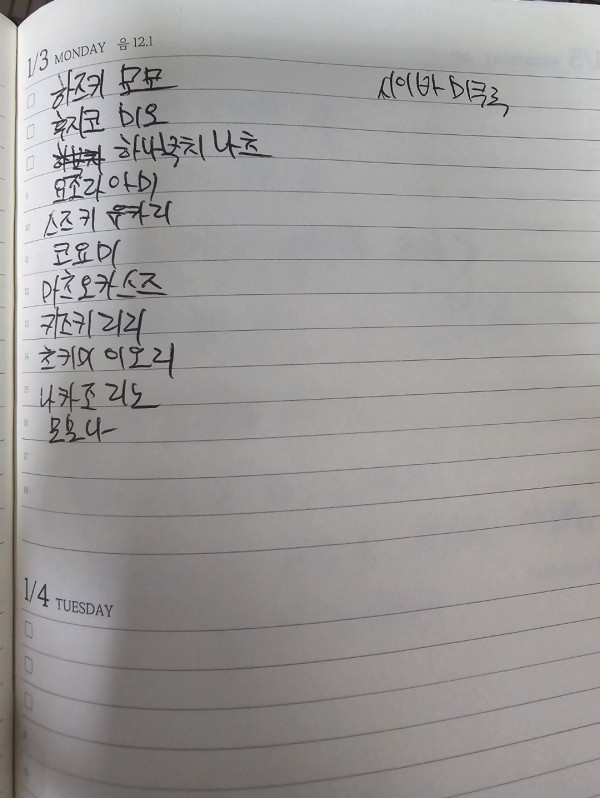 1/3 MONDAY 음 12.1
하즈키 모모 시이바 미쿠루
후지코 미오
하나쿠치 나츠
요조라 아미
스즈키 유카리
코요미
마츠오카 스즈
키즈키 리리
츠키미 이오리
나카조 리노
모모나
9
10
11
12
13
14
15
16
17
18
1/4 TUESDAY